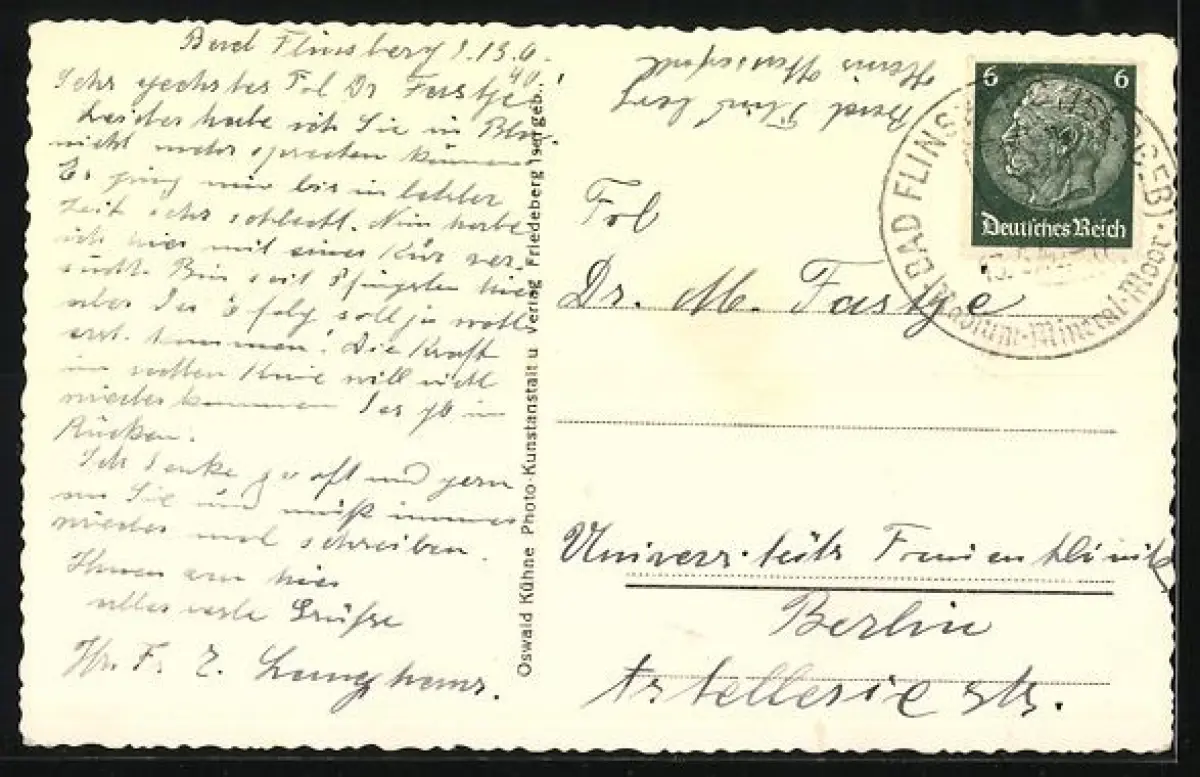 Bad Flinsberg d. 13.6.
40.
Sehr geehrtes Frl Dr Fastje!
Leider habe ich Sie in Bln
nicht mehr sprechen können
Es ging mir bis in letzter
Zeit sehr schlecht. Nun habe
ich hier mit einer Kur ver-
sucht. Bin seit Pfingsten hier
aber der Erfolg soll ja
erst kommen! Die Kraft
im Knie will nicht
wieder kommen
Rücken.
Ich denke so oft und gern
an Sie und muß immer
wieder mal schreiben.
Ihnen von hier
alles Grüße
Ihr. F. E. Langhans.
Oswald Kühne Photo-Kunstanstalt u Verlag Friedeberg Isergeb.
Bad Flinsberg
Haus
6 6
Deutsches Reich
BAD FLINSBERG (ISERGEB)
Radium-Mineral-Moor
Frl
Dr. M. Fastje
Universitäts Frauenklinik
Berlin
Artilleriestr.